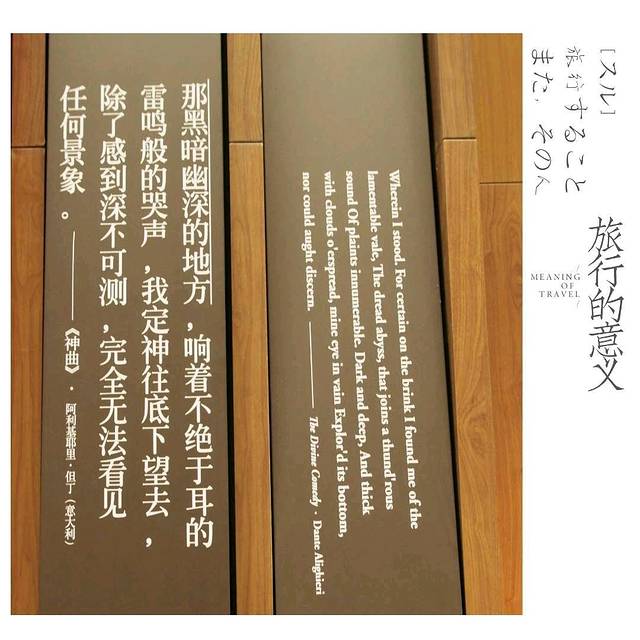 那黑暗幽深的地方，响着不绝于耳的
雷鸣般的哭声，我定神往底下望去，
除了感到深不可测，完全无法看见
任何景象。——《神曲》·阿利基耶里·但丁（意大利）
Wherein I stood. For certain on the brink I found me of the
lamentable vale, The dread abyss, that joins a thund'rous
sound Of plaints innumerable. Dark and deep, And thick
with clouds o'erspread, mine eye in vain Explor'd its bottom,
nor could aught discern. —— The Divine Comedy · Dante Alighieri
[スル]
旅行すること
また，その人
旅行的意义
MEANING
OF
TRAVEL